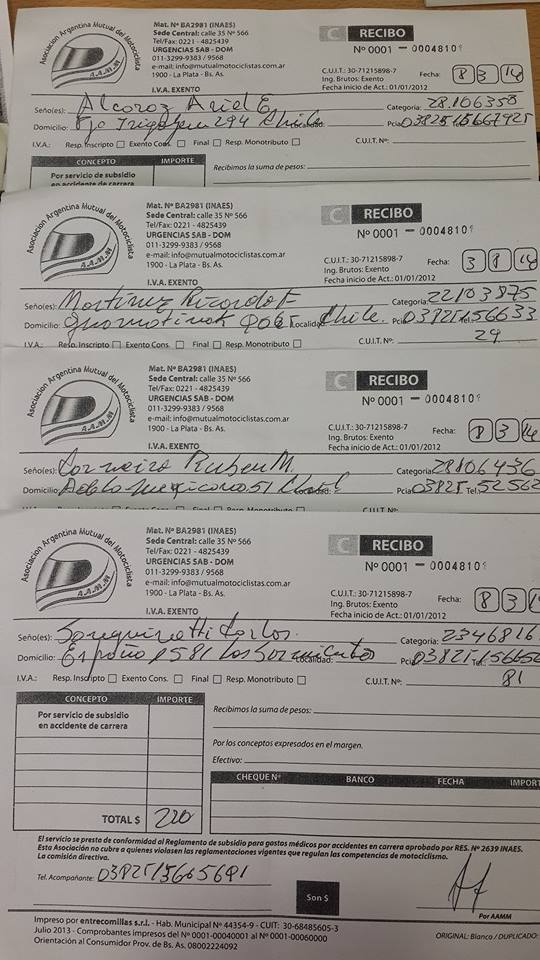 Asociación Argentina Mutual del Motociclista
A.A.M.M
Mat. Nº BA2981 (INAES)
Sede Central: calle 35 Nº 566
Tel/Fax: 0221 - 4825439
URGENCIAS SAB - DOM
011-3299-9383 / 9568
e-mail: info@mutualmotociclistas.com.ar
1900 - La Plata - Bs. As.
I.V.A. EXENTO
C RECIBO
Nº 0001 - 0004810
C.U.I.T.: 30-71215898-7
Ing. Brutos: Exento
Fecha inicio de Act.: 01/01/2012
Fecha: 8 3 14
Señor(es): Alcoroz Ariel E Categoría: 28.106358
Domicilio: 294 Chile Pcia 0382515667925
I.V.A.: Resp. Inscripto Exento Cons. Final Resp. Monotributo C.U.I.T. Nº:
CONCEPTO IMPORTE
Recibimos la suma de pesos:
Por servicio de subsidio
en accidente de carrera
Asociación Argentina Mutual del Motociclista
A.A.M.M
Mat. Nº BA2981 (INAES)
Sede Central: calle 35 Nº 566
Tel/Fax: 0221 - 4825439
URGENCIAS SAB - DOM
011-3299-9383 / 9568
e-mail: info@mutualmotociclistas.com.ar
1900 - La Plata - Bs. As.
I.V.A. EXENTO
C RECIBO
Nº 0001 - 0004810
C.U.I.T.: 30-71215898-7
Ing. Brutos: Exento
Fecha inicio de Act.: 01/01/2012
Fecha: 3 8 14
Señor(es): Martinez Ricardo F Categoría: 22103875
Domicilio: Localidad: Chile. Pcia 03825 Tel. 156633
29
I.V.A.: Resp. Inscripto Exento Cons. Final Resp. Monotributo C.U.I.T. Nº:
Asociación Argentina Mutual del Motociclista
A.A.M.M
Mat. Nº BA2981 (INAES)
Sede Central: calle 35 Nº 566
Tel/Fax: 0221 - 4825439
URGENCIAS SAB - DOM
011-3299-9383 / 9568
e-mail: info@mutualmotociclistas.com.ar
1900 - La Plata - Bs. As.
I.V.A. EXENTO
C RECIBO
Nº 0001 - 0004810
C.U.I.T.: 30-71215898-7
Ing. Brutos: Exento
Fecha inicio de Act.: 01/01/2012
Fecha: 8 3 14
Señor(es): Ruben M. Categoría 28106436
Domicilio: 51 Pcia 03825 Tel. 52562
Asociación Argentina Mutual del Motociclista
A.A.M.M
Mat. Nº BA2981 (INAES)
Sede Central: calle 35 Nº 566
Tel/Fax: 0221 - 4825439
URGENCIAS SAB - DOM
011-3299-9383 / 9568
e-mail: info@mutualmotociclistas.com.ar
1900 - La Plata - Bs. As.
I.V.A. EXENTO
C RECIBO
Nº 0001 - 0004810
C.U.I.T.: 30-71215898-7
Ing. Brutos: Exento
Fecha inicio de Act.: 01/01/2012
Fecha: 8 3
Señor(es): Carlos. Categoría: 2346816
Domicilio: España 1581 Los Pcia 03825 Tel. 156656
81
I.V.A.: Resp. Inscripto Exento Cons. Final Resp. Monotributo C.U.I.T. Nº:
CONCEPTO IMPORTE
Por servicio de subsidio
en accidente de carrera
TOTAL $ 220
Recibimos la suma de pesos:
Por los conceptos expresados en el margen.
Efectivo:
CHEQUE Nº BANCO FECHA IMPORT
El servicio se presta de conformidad al Reglamento de subsidio para gastos médicos por accidentes en carrera aprobado por RES. Nº 2639 INAES.
Esta Asociación no cubre a quienes violasen las reglamentaciones vigentes que regulan las competencias de motociclismo.
La comisión directiva.
Tel. Acompañante: 0382515665691
Son $
Por AAMM
Impreso por entrecomillas s.r.l. - Hab. Municipal Nº 44354-9 - CUIT: 30-68485605-3
Julio 2013 - Comprobantes impresos del Nº 0001-00040001 al Nº 0001-00060000
Orientación al Consumidor Prov. de Bs. As. 08002224092
ORIGINAL: Blanco / DUPLICADO: